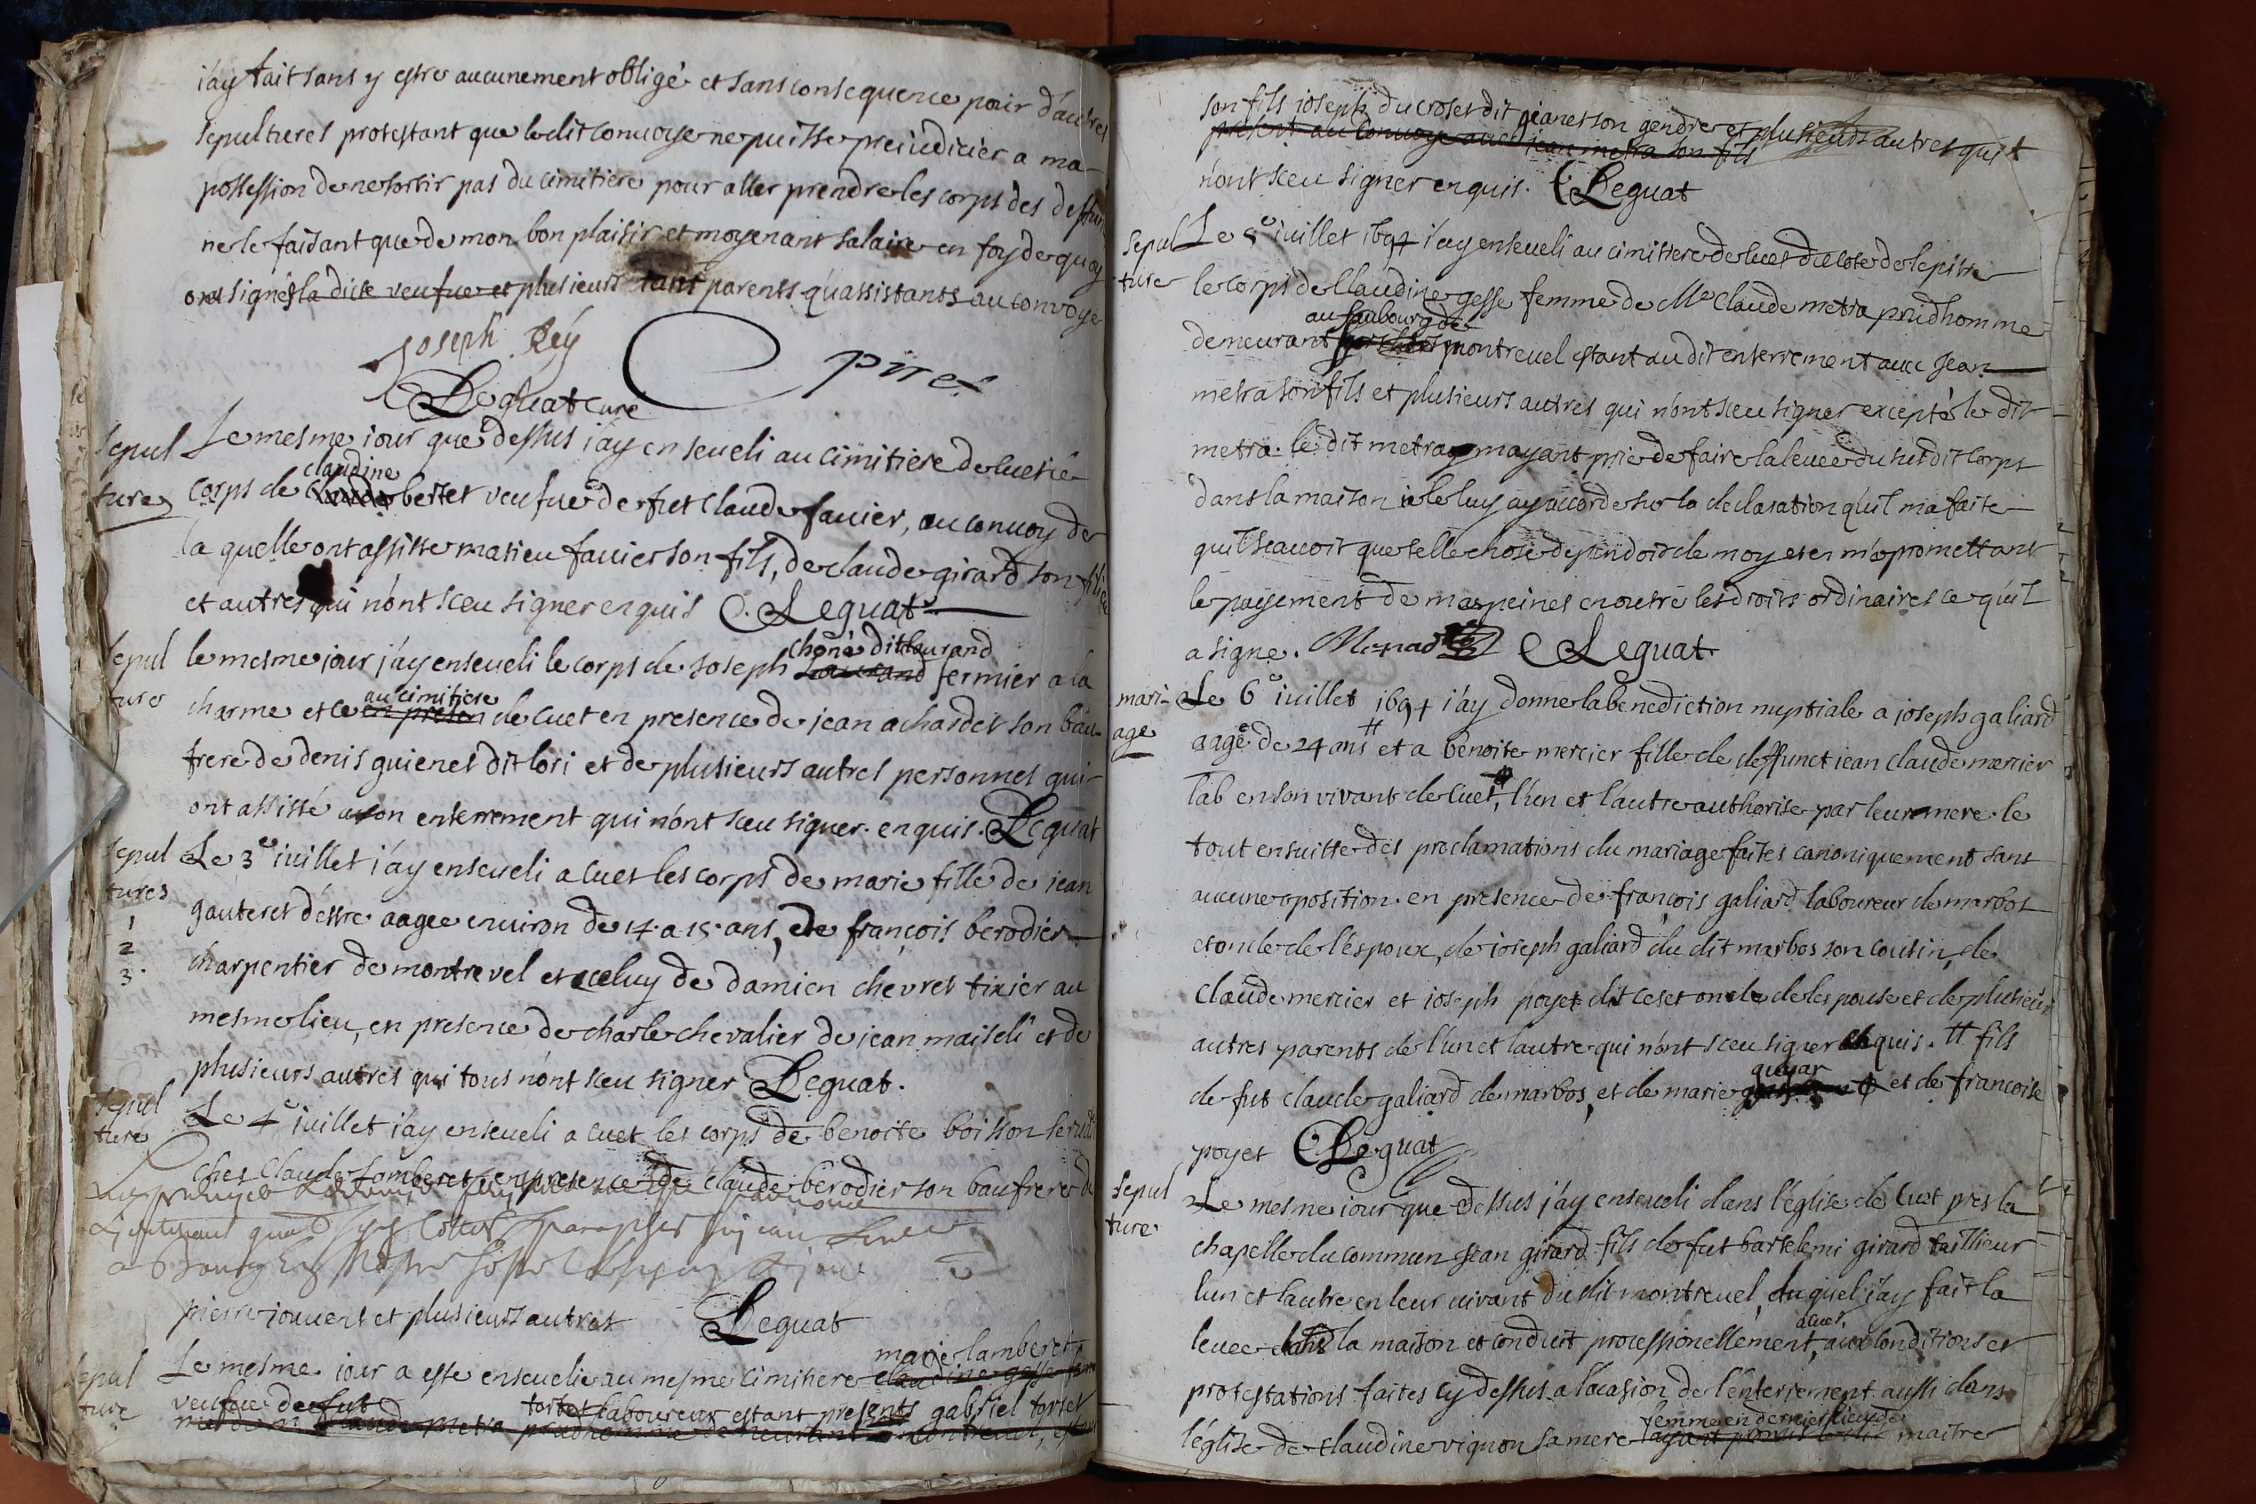 i'ay fait sans y estre aucunement obligé et sans consequence pour d'autres
sepultures protestant que le dit convoye ne puisse preiudicier a ma
possession de ne sortir pas du cimitiere pour aller prendre les corps des
ne le faisant que de mon bon plaisir et moyenant salaire en foy de quoy
ont signés la dicte veufue et plusieurs tant parents qu'assistants au convoye
Joseph Rey
piret
Leguat cure
sepul
ture
Le mesme iour que dessus i'ay enseueli au cimitiere de cuet le
claudine
corps de bertet veufue de fut claude fauier, au convoy de
la quelle ont assiste matieu fauier son fils, de claude girard son
et autres qui n'ont sceu signer enquis Leguat
sepul
ture
choné dit laurand
le mesme jour j'ay enseueli le corps de Joseph laurand fermier a la
au cimitiere
charme et ce en presen de cuet en presence de jean achardet son bau
frere de denis guienet dit lori et de plusieurs autres personnes qui
ont assisté a son enterrement qui n'ont sceu signer enquis. Leguat
sepul
tures
1
2
3
Le 3e iuillet i'ay enseueli a cuet les corps de marie fille de jean
gauteret d'estre aagee environ de 14 a 15 ans, de françois berodier
charpentier de montrevel et celuy de damien chevret tixier au
mesme lieu, en presence de charle chevalier de jean maiseli et de
plusieurs autres qui tous n'ont sceu signer Leguat.
sepul
ture
Le 4e iuillet i'ay enseueli a cuet les corps de benoite boisson
ches Claude lamberet en presence de claude berodier son baufrere de
pierre iouuent et plusieurs autres Leguat
sepul
ture
marie lamberet
Le mesme iour a este enseuelie au mesme cimitiere claudine gesse
veufue de fut tortet laboureur estant presents gabriel tortet
claude metra prudhomme demeurant a montrevel,
son fils ioseph du croset dit janet son gendre et plusieurs autres qui
present au convoye avec jean metra son fils
n'ont sceu signer enquis. Leguat
sepul
ture
Le 5e iuillet 1694 i'ay enseueli au cimitiere de cuet du coté de lepitre
le corps de Claudine gesse femme de Me Claude metra prudhomme
au faubourg de
demeurant montrevel estant au dit enterrement avec Jean
metra son fils et plusieurs autres qui n'ont sceu signer excepté le dit
metra. le dit metra m'ayant prie de faire la levee du susdit corps
dans la maison ie le luy ay accordé sur la declaration qu'il m'a faite
quil scauoit que telle chose dependoit de moy et en me promettant
le payement de mes peines en outre les droits ordinaires ce qu'il
a signe. Metrad Leguat
mari-
age
Le 6e iuillet 1694 i'ay donne la benediction nuptiale a joseph galiard
aagé de 24 ans # et a benoite mercier fille de deffunct jean claude mercier
lab en son vivant de Cuet, l'un et l'autre authorise par leur mere. le
tout ensuitte des proclamations du mariage faites canoniquement sans
aucune oposition. en presence de françois galiard laboureur de marbos
et oncle de l'espoux, de ioseph galiard du dit marbos son cousin, de
Claude mercier et ioseph poyet dit ceset oncle de lespouse et de plusieurs
autres parents de l'un et lautre qui n'ont sceu signer enquis. # fils
guyar
de fut claude galiard de marbos, et de marie et de francoise
poyet Leguat
sepul
ture
Le mesme iour que dessus j'ay enseueli dans l'église de Cuet pres la
chapelle du commun Jean girard fils de fut bartelemi girard taillieur
lun et lautre en leur vivant du dit montrevel, duquel j'ay fait la
a cuet,
levee dans la maison et conduit processionellement, aux conditions et
protestations faites cy dessus a l'ocasion de l'enterrement aussi dans
femme en dernier lieu de
l'église de claudine vignon sa mere maitre